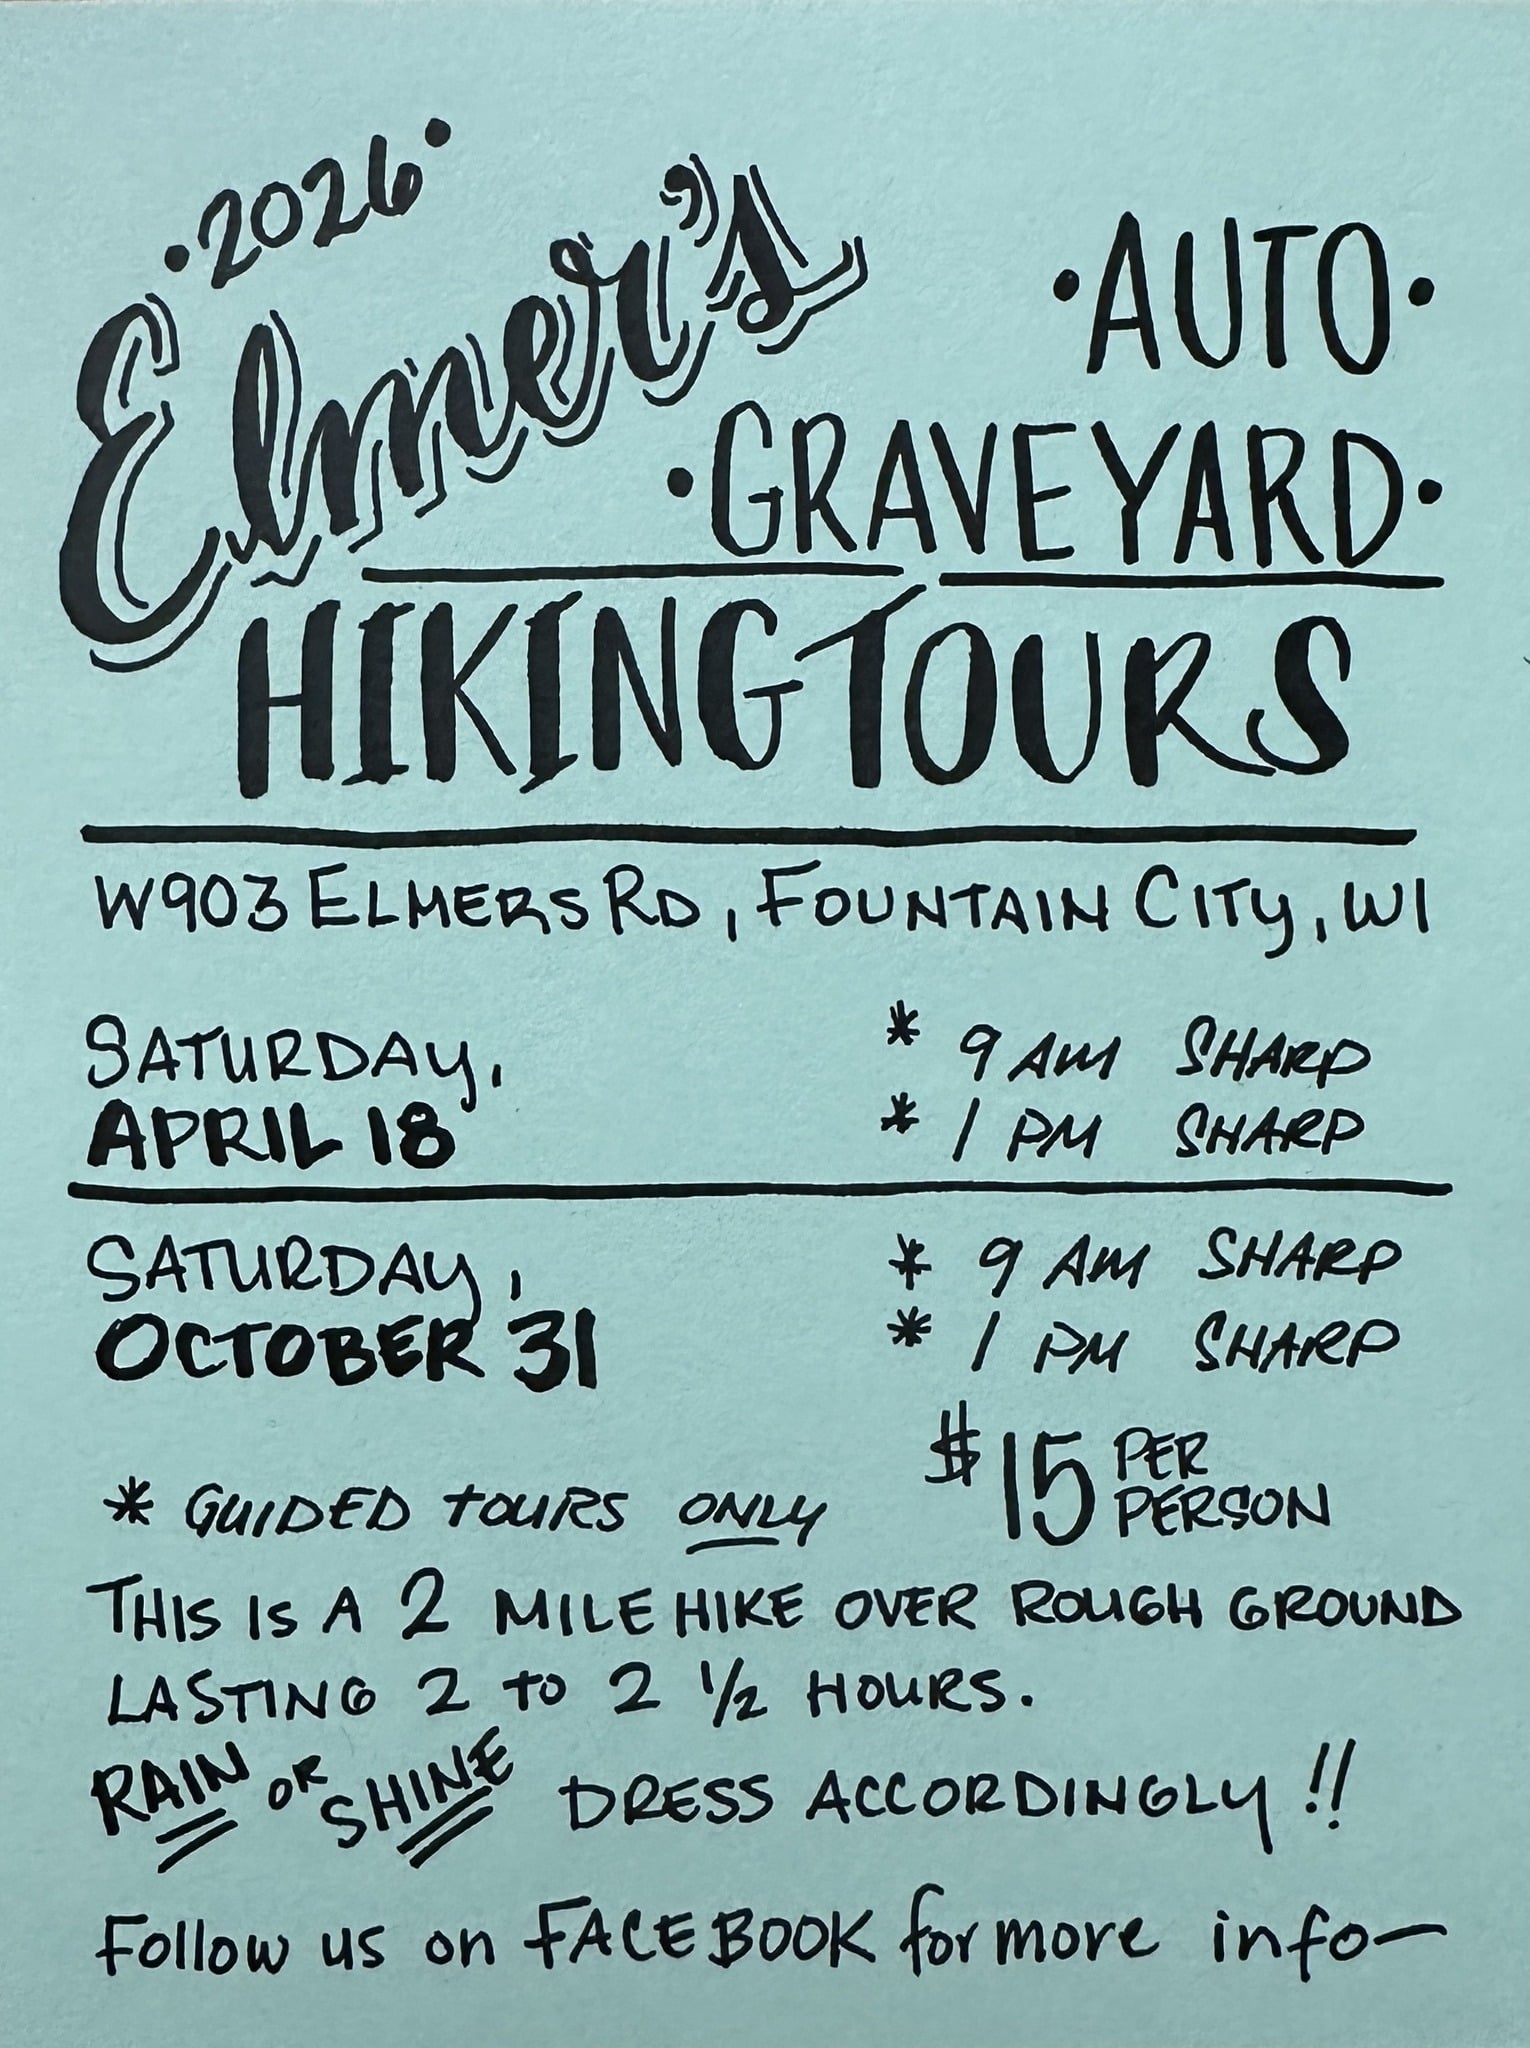 •2026•
Elmer's
•AUTO•
•GRAVEYARD•
HIKING TOURS
W903 ELMERS RD, FOUNTAIN CITY, WI
SATURDAY, * 9 AM SHARP
APRIL 18 * 1 PM SHARP
SATURDAY, * 9 AM SHARP
OCTOBER 31 * 1 PM SHARP
* GUIDED TOURS ONLY $15 PER PERSON
THIS IS A 2 MILE HIKE OVER ROUGH GROUND
LASTING 2 TO 2 1/2 HOURS.
RAIN OR SHINE DRESS ACCORDINGLY!!
Follow us on FACEBOOK for more info—